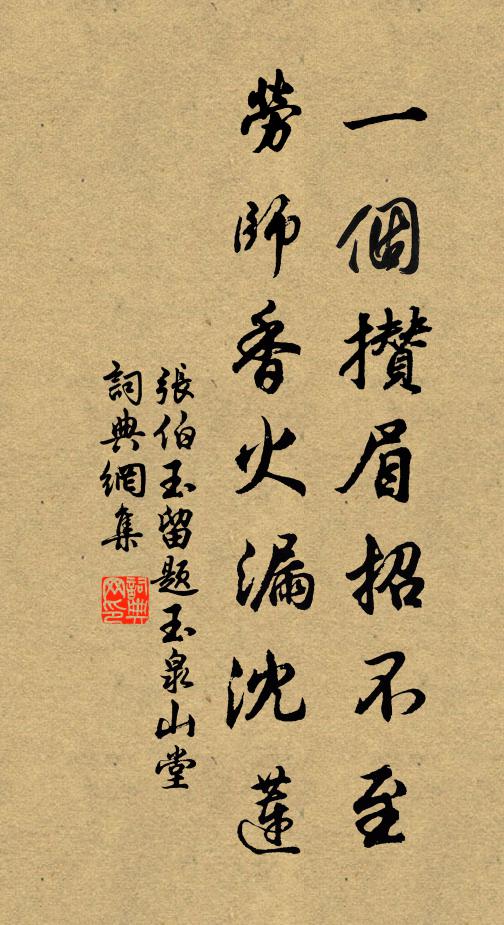 一個攢眉招不至
勞師香火漏沈蓮
張伯玉留題玉泉山堂
詞典網集
詞典網印